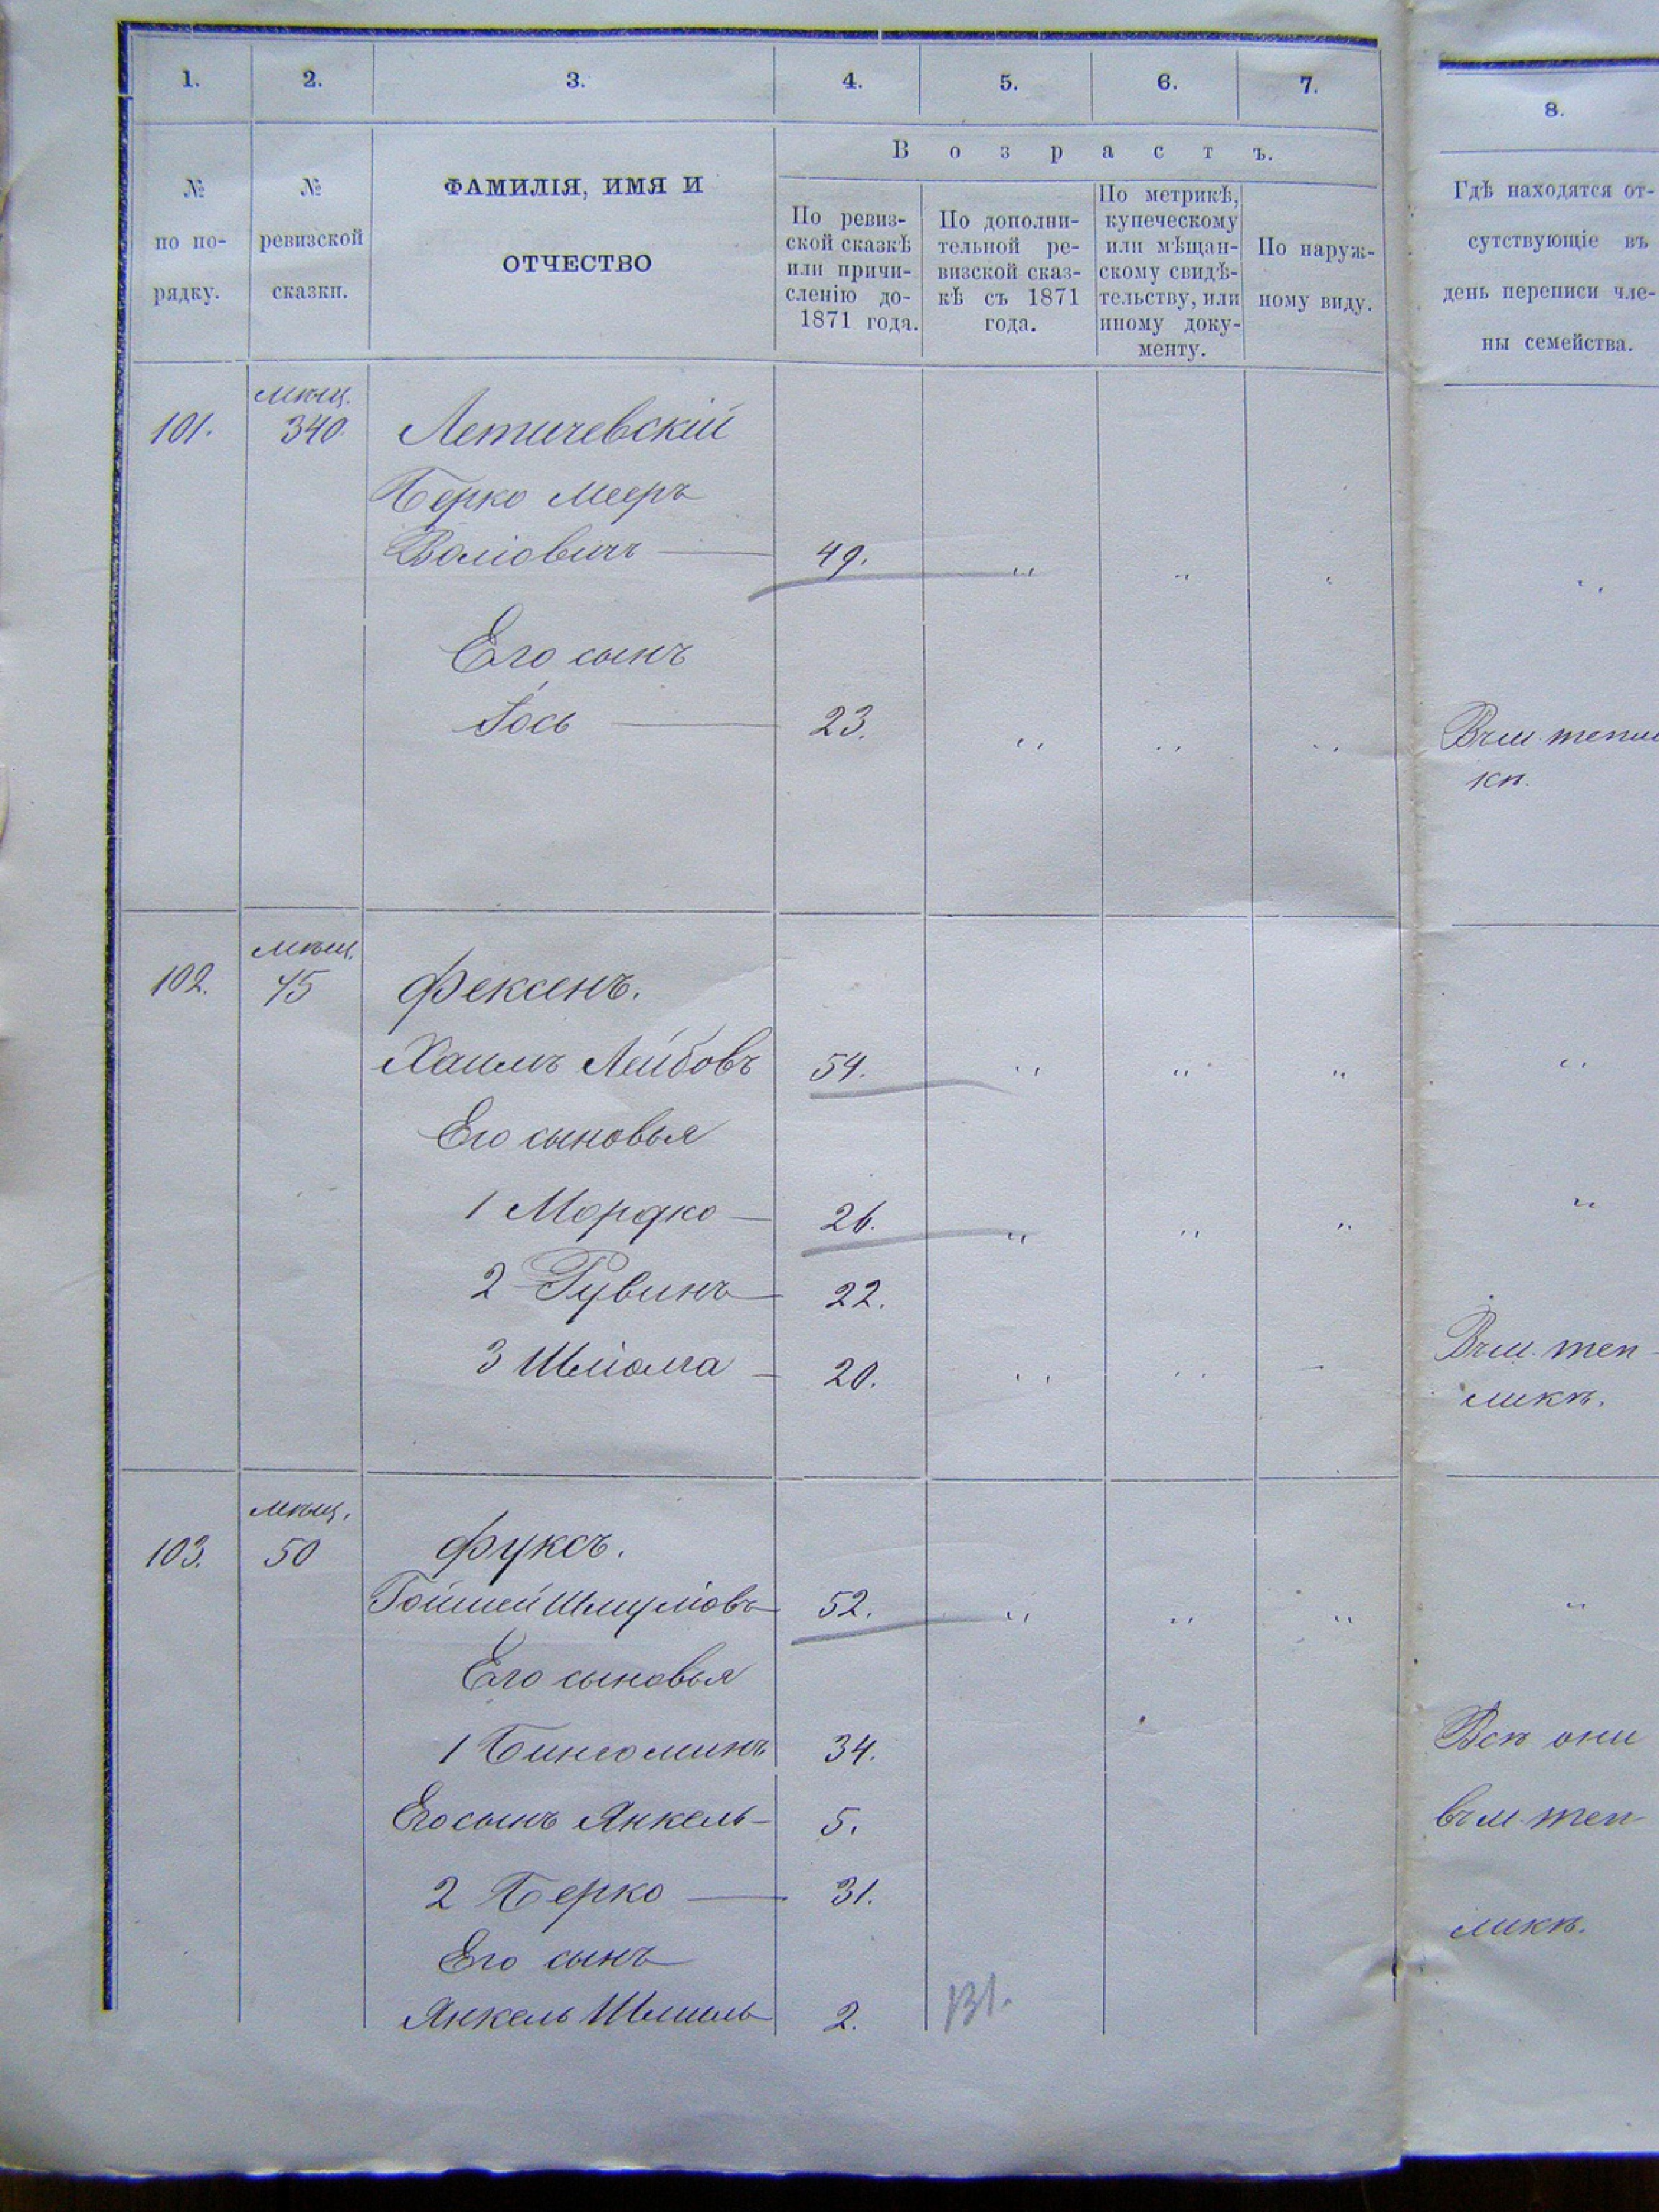 1. 2. 3. 4. 5. 6. 7. 8.
В о з р а с т ъ.
№
по по-
рядку.
№
ревизской
сказки.
ФАМИЛІЯ, ИМЯ И
ОТЧЕСТВО
По ревиз-
ской сказкѣ
или причи-
сленію до-
1871 года.
По дополни-
тельной ре-
визской сказ-
кѣ съ 1871
года.
По метрикѣ,
купеческому
или мѣщан-
скому свидѣ-
тельству, или
иному доку-
менту.
По наруж-
ному виду.
Гдѣ находятся от-
сутствующіе въ
день переписи чле-
ны семейства.
мѣщ.
101. 340. Летичевскій
Берко Мееръ
49. „ „ „ „
Его сынъ
Іось 23. „ „ „ Въ м. Тепли
кѣ.
мѣщ.
102. 45 Фексенъ.
Хаимъ Лейбовъ 54. „ „ „ „
Его сыновья
1 Мордко 26. „ „ „ „
2 Рувинъ 22.
3 Шліома 20. „ „ Въ м. Теп-
ликѣ.
мѣщ.
103. 50 Фуксъ.
52. „ „ „ „
Его сыновья
1 Бинюминъ 34. Всѣ они
Его сынъ Янкель 5. въ м. Теп
2 Берко 31. ликѣ.
Его сынъ
Янкель 2. 131.